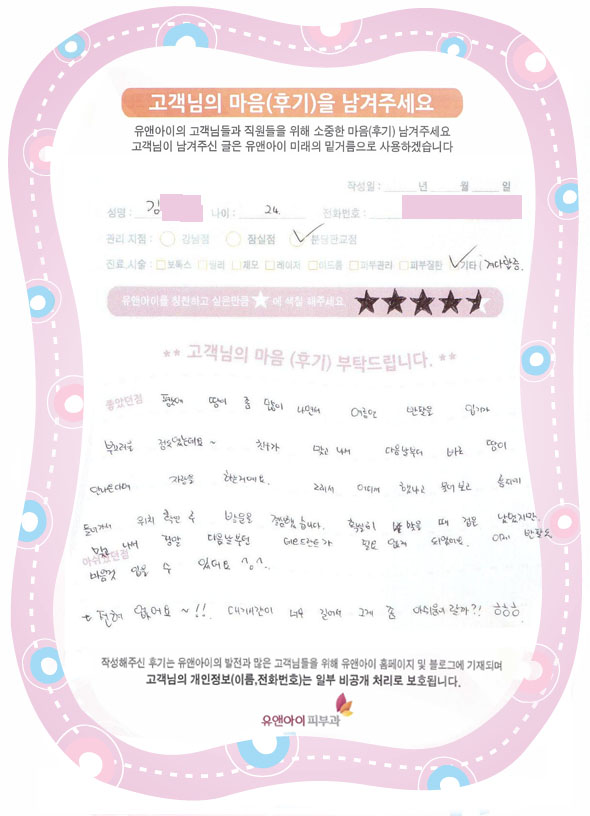 고객님의 마음(후기)을 남겨주세요
유앤아이의 고객님들과 직원들을 위해 소중한 마음(후기) 남겨주세요
고객님이 남겨주신 글은 유앤아이 미래의 밑거름으로 사용하겠습니다
작성일 : 년 월 일
성명 : 김 나이 : 24 전화번호 :
관리 지점 : 강남점 잠실점 분당판교점
진료,시술 : 보톡스 필러 제모 레이저 여드름 피부관리 피부질환 기타 ( 겨다한증.
유앤아이를 칭찬하고 싶은만큼 ★ 에 색칠 해주세요 ★★★★★
** 고객님의 마음 (후기) 부탁드립니다. **
좋았던점 평소에 땀이 좀 많이 나면서 여름엔 반팔을 입기가
부끄러울 정도였는데요~ 친구가 맞고 나서 다음날부터 바로 땀이
안나온다며 자랑을 하는거예요. 그래서 어디서 했냐고 물어보고
위치 확인 후 방문을 결정했습니다. 확실히 맞을 때 점은 났었지만,
맞고 나서 정말 다음날부턴 데오드란트가 필요 없게 되었어요. 이제 반팔도
아쉬웠던점
마음껏 입을 수 있어요 ^^
전혀 없어요~!! 대기시간이 너무 길어서 그게 좀 아쉬움이랄까?! ㅎㅎㅎ
작성해주신 후기는 유앤아이의 발전과 많은 고객님들을 위해 유앤아이 홈페이지 및 블로그에 기재되며
고객님의 개인정보(이름,전화번호)는 일부 비공개 처리로 보호됩니다.
유앤아이피부과